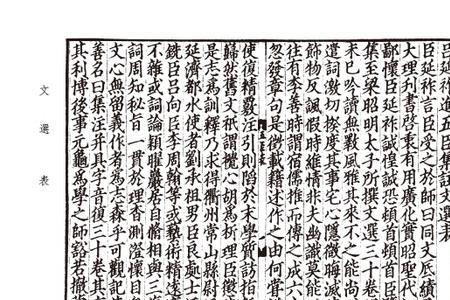 臣延祚進五臣集註文選表
臣延祚言臣受之於師曰同文厎績
大理刊書啓衷有用廣化實昭聖代
鄙懷臣延祚誠惶誠恐頓首頓首臣
集至梁昭明太子所撰文選三十卷
未已吟讀無斁風雅其來不之能尚
遣詞激切揆度其事宅心隱微晦滅
飾物反諷假時維情非夫幽識莫能
往有李善時謂宿儒推而傳之成六
忽發章句是徵載籍述作之由何嘗
使復精覈注引則陷於末學質訪指
巋然舊文秖謂攪心胡爲析理臣懲
是志爲訓釋乃求得衢州常山縣尉
延濟都水使者劉承祖男臣良處士
銑臣呂向臣李周翰等或藝術精遠
不雜或詞論穎曜巖居自脩相與三
詞周知秘旨一貫於理杳測澄懷目
文心無留義作者爲志森乎可觀記
善名曰集注并具字音復三十卷其
其利博後事元龜爲學之師豁若撤
文選表